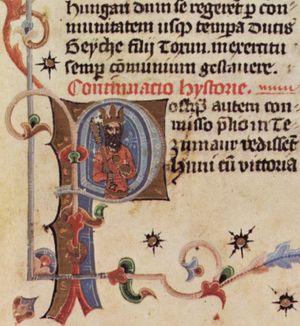 hungari dum se regeret p con
munitatem usq tempa ducis
Geyche filij Torun. in exercitu
semp comunium gestauere.
Continuatio hystorie.
Postq̃ autem con
misso p̃lio in Te
zinmaur vedisset
Huni cũ victoria